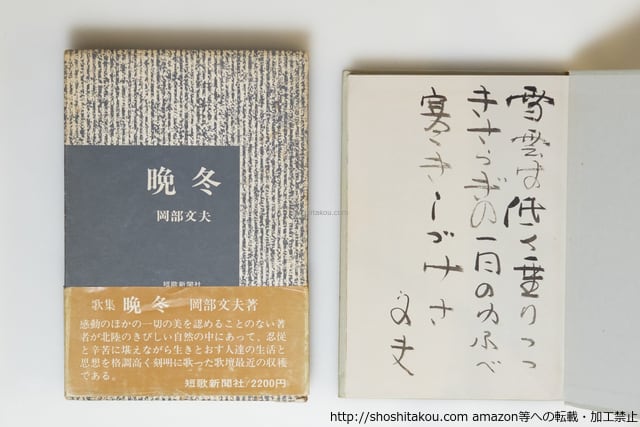 晩冬
岡部文夫
短歌新聞社
歌集 晩冬 岡部文夫著
感動のほかの一切の美を認めることのない著
者が北陸のきびしい自然の中にあって、忍従
と辛苦に堪えながら生きとおす人達の生活と
思想を格調高く剋明に歌った歌壇最近の収穫
である。
短歌新聞社/2200円
雪雲は低く垂りつつ
きさらぎの一日のゆふべ
寒きしづけさ
文夫
http://shoshitakou.com amazon等への転載・加工禁止